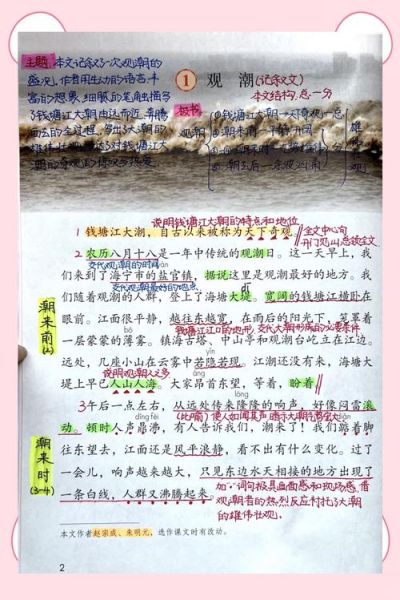 主题:本文记叙了一次观潮的
盛况,作者用生动的语言、丰
富的想象、细腻的笔触描写
了钱塘江大潮由远而近、奔腾
西去的全过程,写出了大潮的
1 观 潮(记叙文)
本文结构:总—分
板书
观潮
说明钱塘江大潮的特点和地位
1 钱塘江大潮,自古以来被称为天下奇观。
全文中心句
开门见山,总领全文
2 农历八月十八是一年中传统的观潮日。这一天早上,我
交代观潮的时间
们来到了海宁市的盐官镇,据说这里是观潮最好的地方。我
交代观潮最好的地点
dī
们随着观潮的人群,登上了海塘大堤。宽阔的钱塘江横卧在
眼前。江面很平静,越往东越宽,在雨后的阳光下,笼罩着
钱塘江江口的地形,交代大潮形成的必要条件
一层蒙蒙的薄雾。镇海古塔、中山亭和观潮台屹立在江边。
远处,几座小山在云雾中若隐若现。江潮还没有来,海塘大
说明观潮人之多
堤上早已人山人海。大家昂首东望,等着,盼着。
潮来前(2)
3 午后一点左右,从远处传来隆隆的响声,好像闷雷滚
动。顿时人声鼎沸,有人告诉我们,潮来了!我们踮着脚
往东望去,江面还是风平浪静,看不出有什么变化。过了
一会儿,响声越来越大,只见东边水天相接的地方出现了
一条白线,人群又沸腾起来。
潮来时(3-4)
观潮者的热烈反应衬托了大潮
的雄伟壮观。
本文作者赵宗成、朱明元,选作课文时有改动。
2